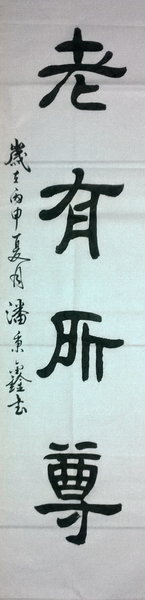 老有所尊
歲在丙申夏月潘秉鑫書